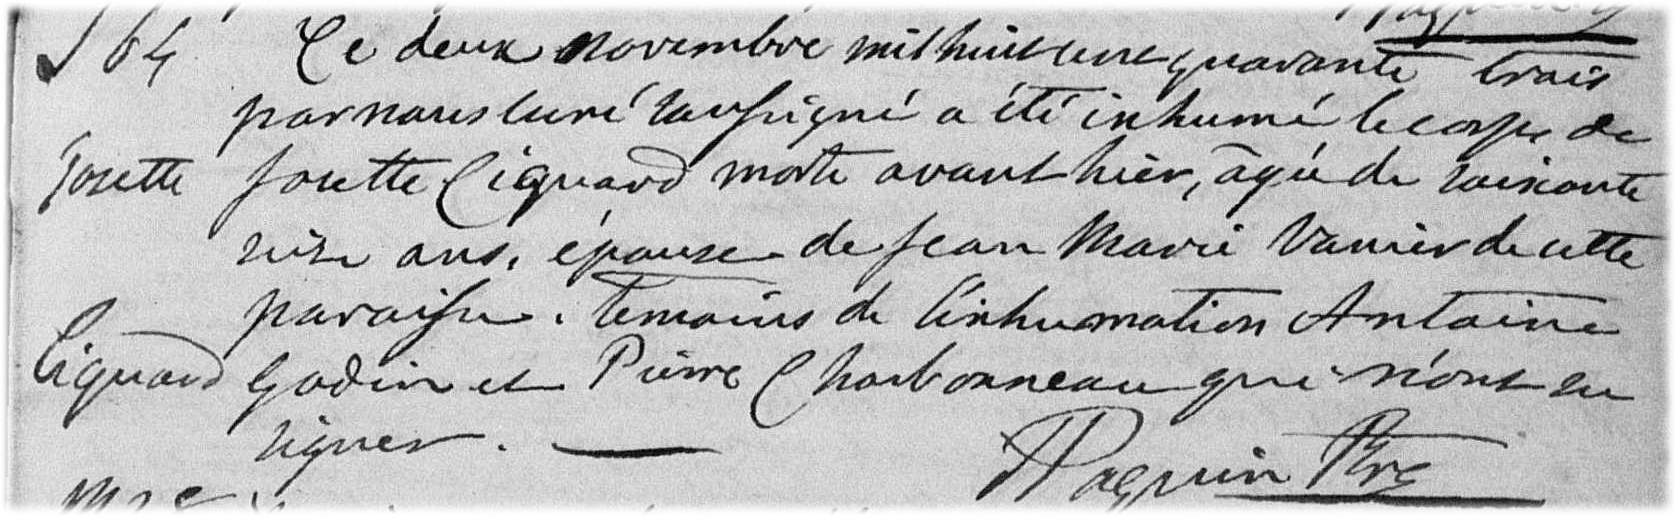 S 64 Ce deux novembre mil huit cent quarante trois
par nous curé soussigné a été inhumé le corps de
Josette Josette Ciquard morte avant hier, âgée de soixante
seize ans, épouse de Jean Marie Vanier de cette
paroisse. temoins de l'inhumation Antoine
Ciquard Godin et Pierre Charbonneau qui n'ont su
signer.
Paquin Ptre